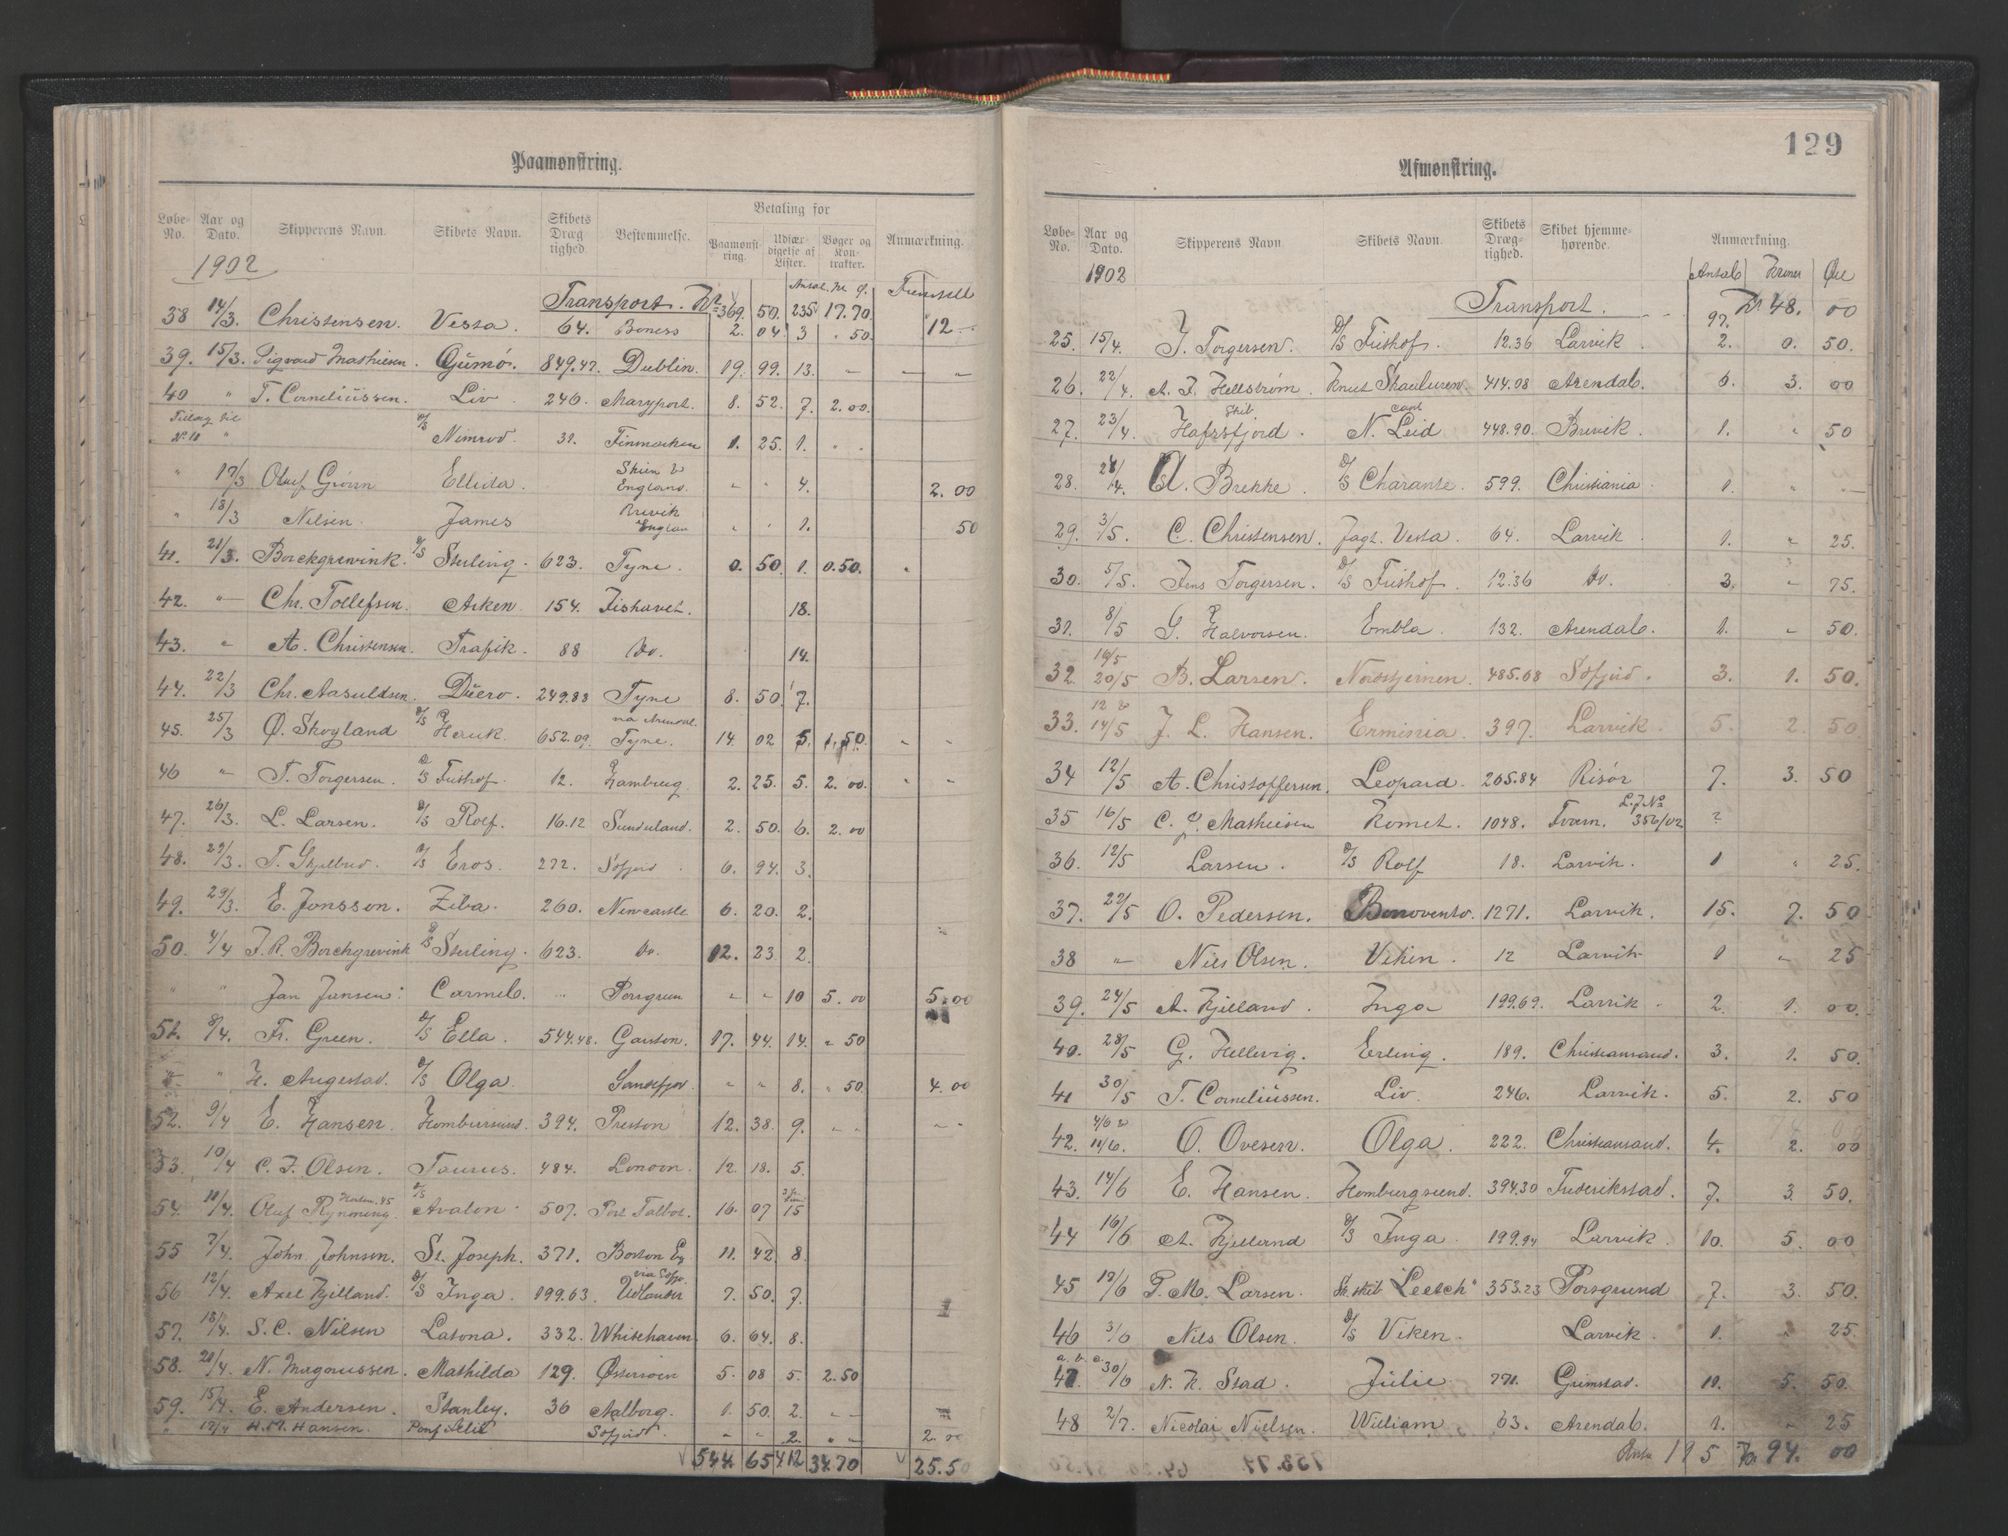 129
Paamønstring.
Løbe-No. Aar og Dato. Skipperens Navn. Skibets Navn. Skibets Drægtighed. Bestemmelse. Betaling for Paamønstring. Udfærdigelse af Lister. Bøger og Kontrakter. Anmærkning.
1902
Transport. Kr 369. 50. 235 17.70.
38 14/3. Christensen. Vesta. 64. Boness 2. 04 3 " 50. 12 -
39. 15/3. Sigvard Mathiesen. Gumø. 849.47. Dublin. 19. 99. 13. - - "
40 " T. Corneliussen. Liv. 246. Maryport. 8. 52. 7. 2.00.
Tillæg til
No 10 " D/S Nimrod. 31. Finmarken 1. 25. 1. " "
" 17/3 Oluf Ellida. Skien & England. " " 4. 2.00
" 18/3 Nilsen. James Brevik England " " 1. 50
41. 21/3. Borchgrevink. D/S Sterling. 623. Tyne. 0. 50. 1. 0.50. "
42. " Chr. Tollefsen. Arken. 154. Ishavet. 18.
43. " A. Christensen. Trafik. 88 Do. 14.
44. 22/3 Chr. Aasuldsen. Duero. 249.88 Tyne 8. 50. 7.
45. 25/3 Ø. Skogland D/S Hauk. 652.09. Tyne. 14. 02 5. 1.50. " "
46 " T. Torgersen. D/S Fiskof. 12. Hamburg 2. 25. 5. 2.00. " "
47. 26/3. L. Larsen. D/S Rolf. 16.12 Sunderland. 2. 50. 6. 2.00
48. 27/3. T. D/S Eros. 272. Sofjord. 6. 94. 3.
49. 29/3. E. Jonsson. Ziba. 260. Newcastle 6. 20. 2.
50. 4/4 F. R. Borchgrevink D/S Sterling. 623. Do. 12. 23 2.
" " Jan Jansen. Carmel. Porsgrun " " 10 5.00 5.00
51. 8/4. Fr. Green. D/S Ella. 544.48. Garston. 17. 44. 14. " 50
" " H. Augestad. D/S Olga. Sandefjor. " " 8. " 50. 4.00
52. 9/4 E. Hansen. Homborsund. 394. Preston 12. 38. 9. " "
53. 10/4 C. J. Olsen. Taurus. 484. London. 12. 18. 5.
54. 10/4. Oluf Rynning. D/S Avalon. 507. Port Talbot. 16. 07 15
55 7/4. John Johnsen. St. Joseph. 371. Boston Eng 11. 42 8.
56 12/4. Axel Kjelland. D/S Inga. 199.63. Udlandet 7. 50. 7.
57. 18/4. S. C. Nilsen Latona. 332. Whitehaven 6. 64. 8.
58. 20/4. N. Magnussen. Mathilda 129. Østersøen 5. 08 5. 2.50
59. 15/4. E. Andersen. Stanley. 36 Aalborg. 1. 50. 2. " "
" 17/4 H. M. Hansen. Sofjord. " " 2. " " 2.00
544. 65 412 34.70 25.50
Afmønstring.
Løbe-No. Aar og Dato. Skipperens Navn. Skibets Navn. Skibets Drægtighed. Skibet hjemmehørende. Anmærkning.
1902 Antal Kroner Øre
Transport. 97. Kr 48. 00
25. 15/4. J. Torgersen. D/S Fiskof. 12.36 Larvik. 2. 0. 50.
26. 22/4. A. T. Hellstrøm. Knut Skaaluren. 414.08 Arendal. 6. 3. 00
27. 23/4. Skib. Hafrsfjord. Capt N. Leid 448.90. Brevik. 1. " 50
28. 28/4. A. Brekke. D/S Charante. 599. Christiania 1. " -
29. 3/5. C. Christensen. Jagt. Vesta. 64. Larvik. 1. " 25.
30. 5/5. Jens Torgersen. D/S Fiskof. 12.36 Do. 3. " 75.
31. 8/5 G. Halvorsen. Embla. 132. Arendal. 1. " 50.
32. 16/5 20/5 B. Larsen. Nordstjernen. 485.68 Sofjord. 3. 1. 50.
33. 12 & 14/5 J. L. Hansen. Erminia. 397. Larvik. 5. 2. 50
34 12/5 A. Christoffersen. Leopard. 205.84 Risør 7. 3. 50
35 16/5 C. J. Mathiesen Komet. 1048. Tvam. L. J. No 356/02 ?
36. 12/5 Larsen. D/S Rolf 18. Larvik. 1 " 25.
37. 22/5 O. Pedersen. Bonovento. 1271. Larvik. 15. 7. 50
38 " Nils Olsen. Viken. 12 Larvik 1 " 25
39. 24/5 A. Kjelland. Inga 199.69. Larvik. 2. 1. 00.
40. 28/5 G. Hellevig. Erling. 189. Christiansand. 3. 1. 50.
41 30/5 T. Corneliussen. Liv. 246. Larvik. 5. 2. 50
42. 4/6 & 14/6. O. Ovesen. Olga. 222. Christiansand. 4. 2. 00
43. 14/6 E. Hansen. Homborgsund. 394.30 Frederikstad. 7. 3. 50.
44 16/6 A. Kjelland D/S Inga. 199.94 Larvik. 10. 5. 00
45 19/6 P. M. Larsen. Sk. skib "Leetch" 353.23 Porsgrund 7. 3. 50.
46 3/6 Nils Olsen. D/S Viken. Larvik. 1. " 25.
a. b. c.
47 30/6 N. K. Stad. Julie 771. Grimstad. 11. 5. 50.
48 2/7. Nicolai Nielsen. William 63. Arendal. 1. " 25
195 Kr. 94. 00